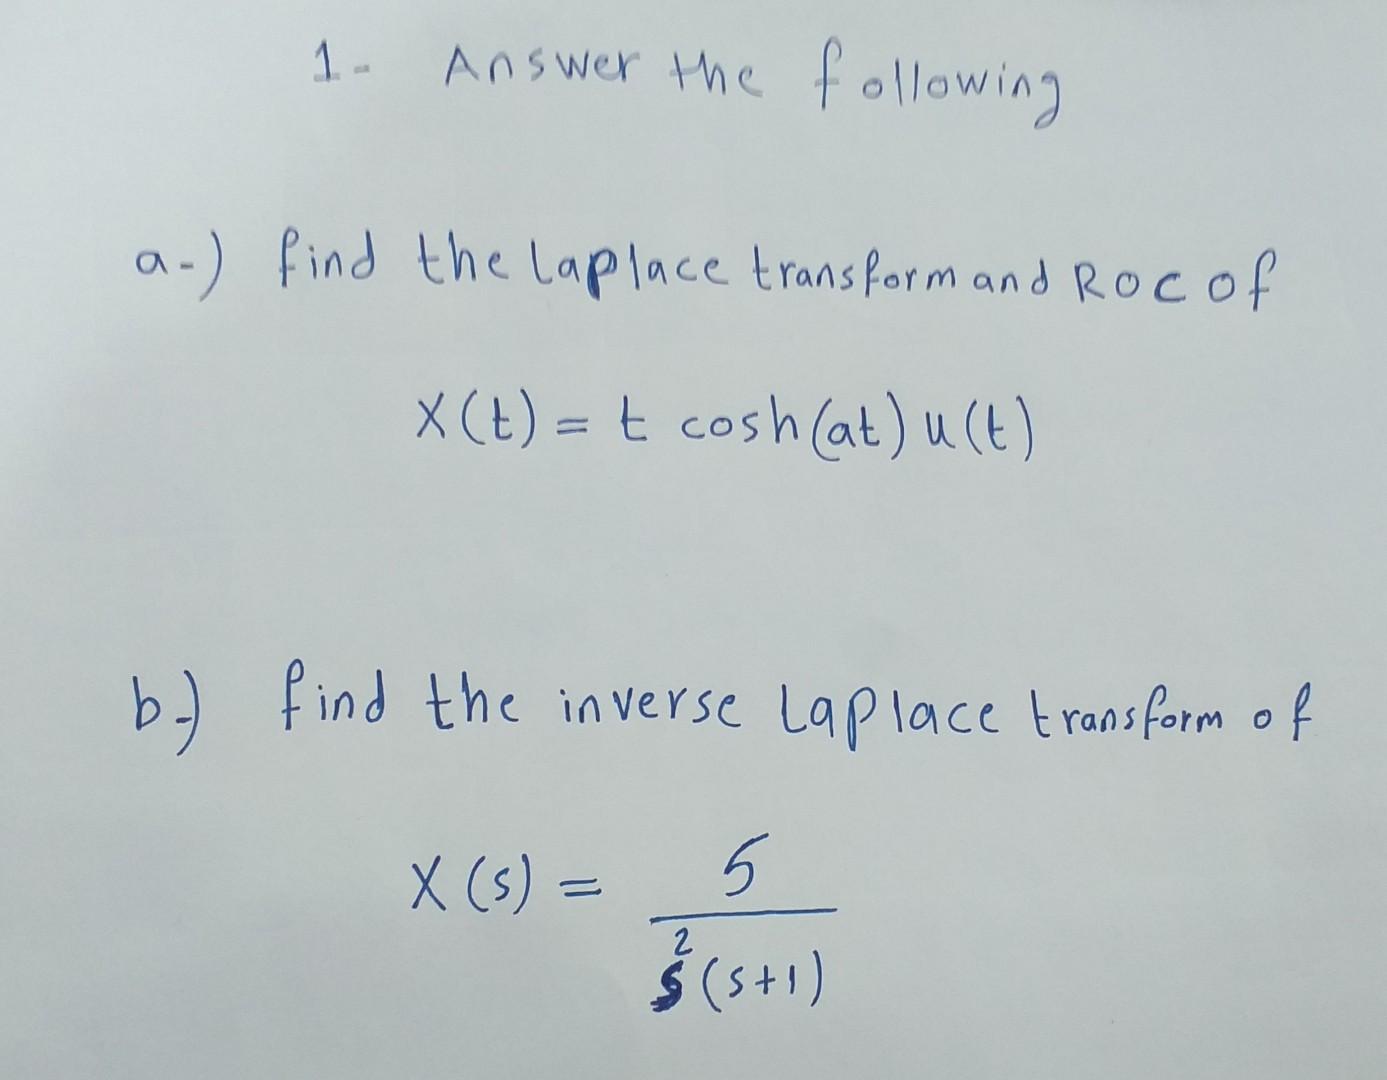 1- Answer the following
a-) find the Laplace transform and ROC of
X(t) = t cosh(at) u(t)
b-) find the inverse Laplace transform of
X(s) = 5
s²(s+1)